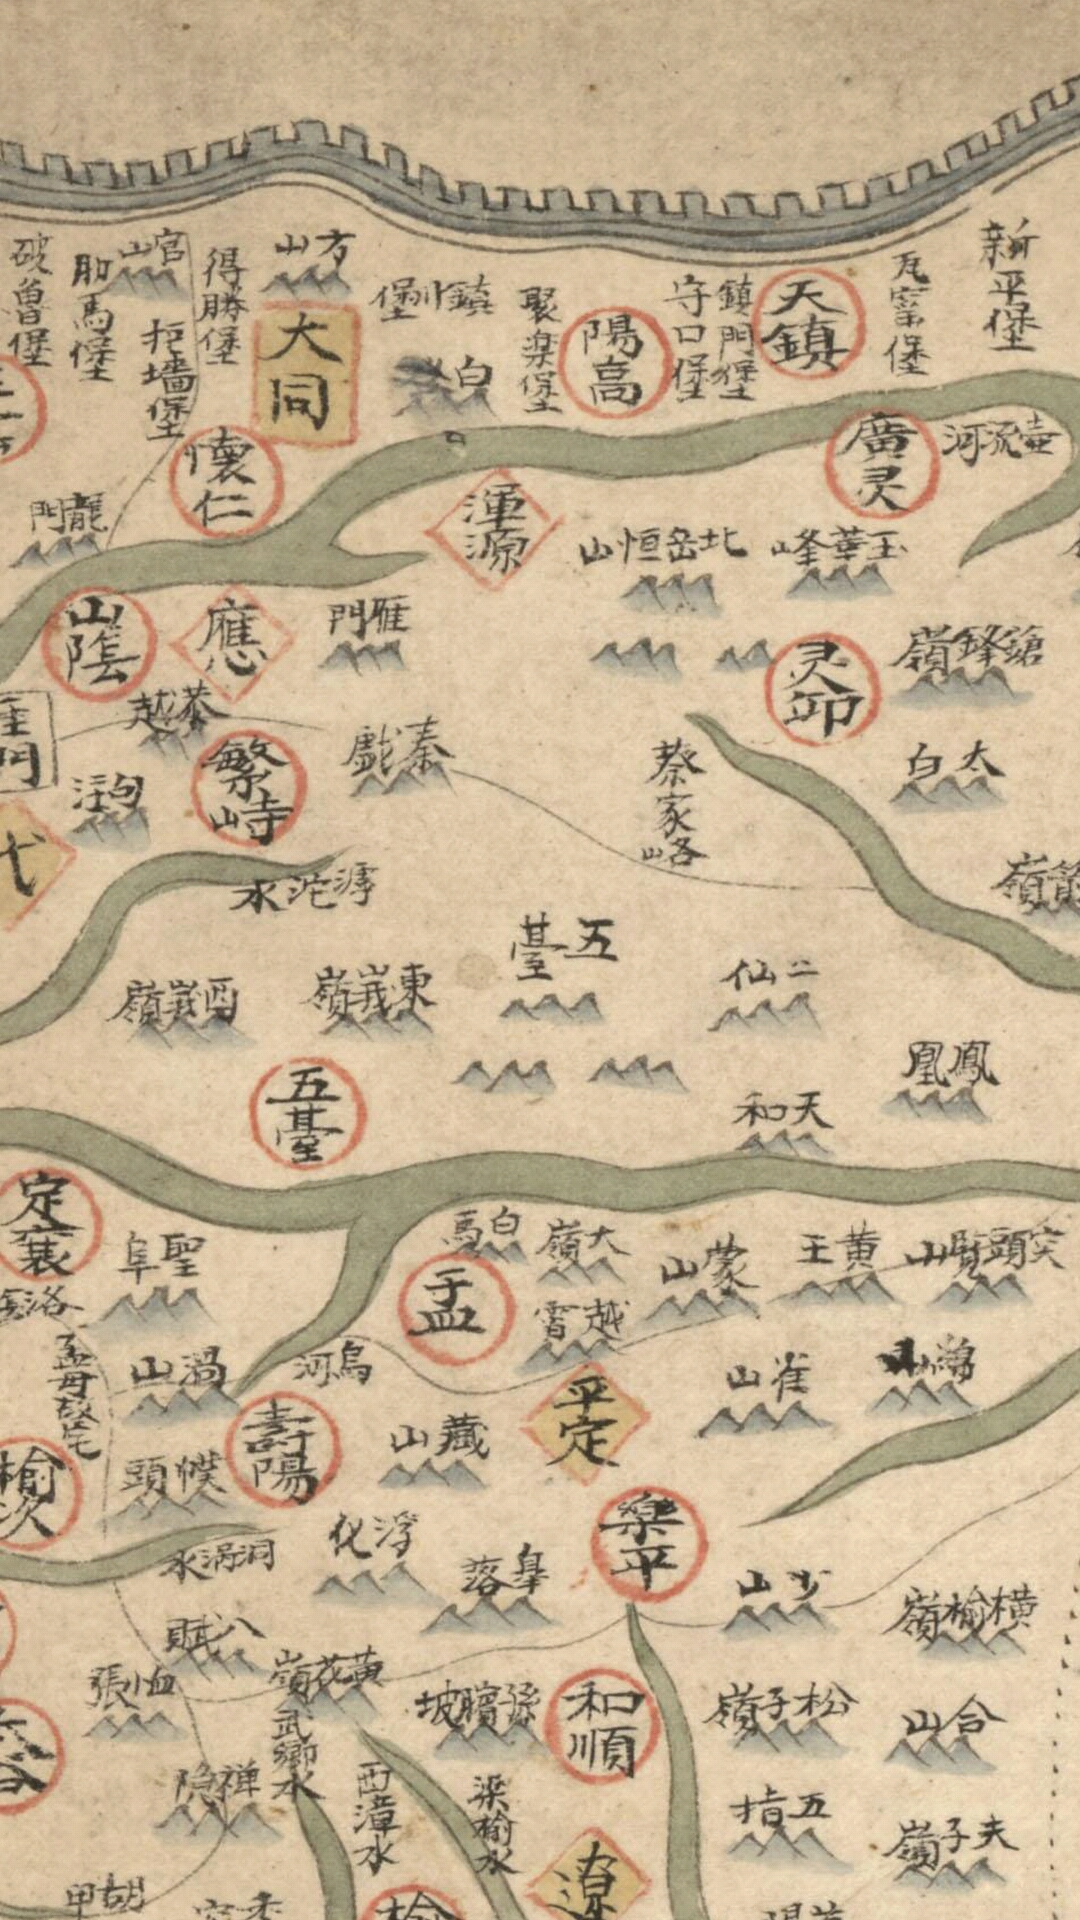 新平堡
瓦窑堡
天鎮
鎮門堡
守口堡
陽高
聚楽堡
鎮川堡
方山
大同
白
得勝堡
官山
拒墙堡
助馬堡
破魯堡
懷仁
龍門
壺流河
廣灵
玉華峰
北岳恒山
渾源
雁門
應
山陰
鎗鋒嶺
灵卭
太白
蔡家峪
秦戲
繁峙
滹沱水
代
五臺
二仙
東峩嶺
西峩嶺
鳳凰
天和
五臺
定襄
突頭山
黄王
蒙山
大嶺
白馬
盂
越霄
聖阜
雀山
烏河
渦山
平定
藏山
壽陽
幞頭
榆次
洞渦水
浮化
皋落
樂平
少山
横榆嶺
八賦
黄花嶺
孫臏坡
和順
松子嶺
合山
武鄉水
西漳水
梁榆水
禅隐
五指
夫子嶺
遼
胡甲
榆